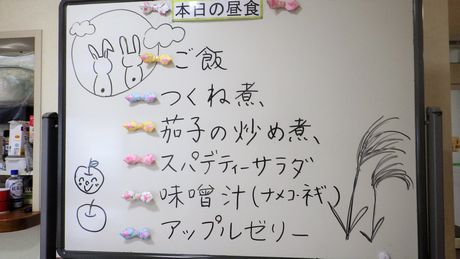 本日の昼食
ご飯
つくね煮、
茄子の炒め煮、
スパデティーサラダ
味噌汁(ナメコ・ネギ)
アップルゼリー